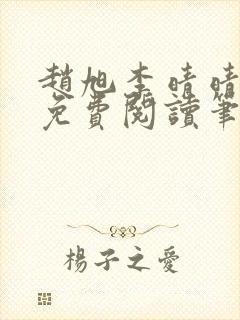 趙旭李晴晴
免費閱讀筆
楊子之愛